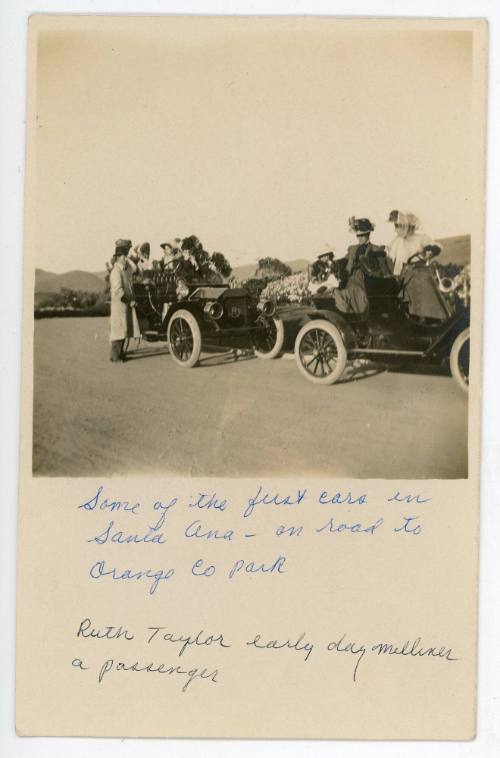 Some of the first cars in
Santa Ana - on road to
Orange Co Park
Ruth Taylor early day milliner
a passenger